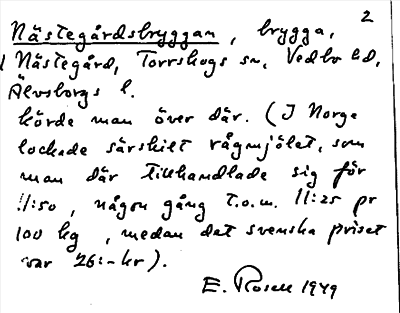 2
Nästegårdsbryggan, brygga,
Nästegård, Torrskogs sn, Vedbo hd,
Älvsborgs l.
körde man över där. (I Norge
lockade särskilt rågmjölet, som
man där tillhandlade sig för
11:50, någon gång t.o.m. 11:25 pr
100 kg, medan det svenska priset
var 26:- kr).
E. Rosell 1949